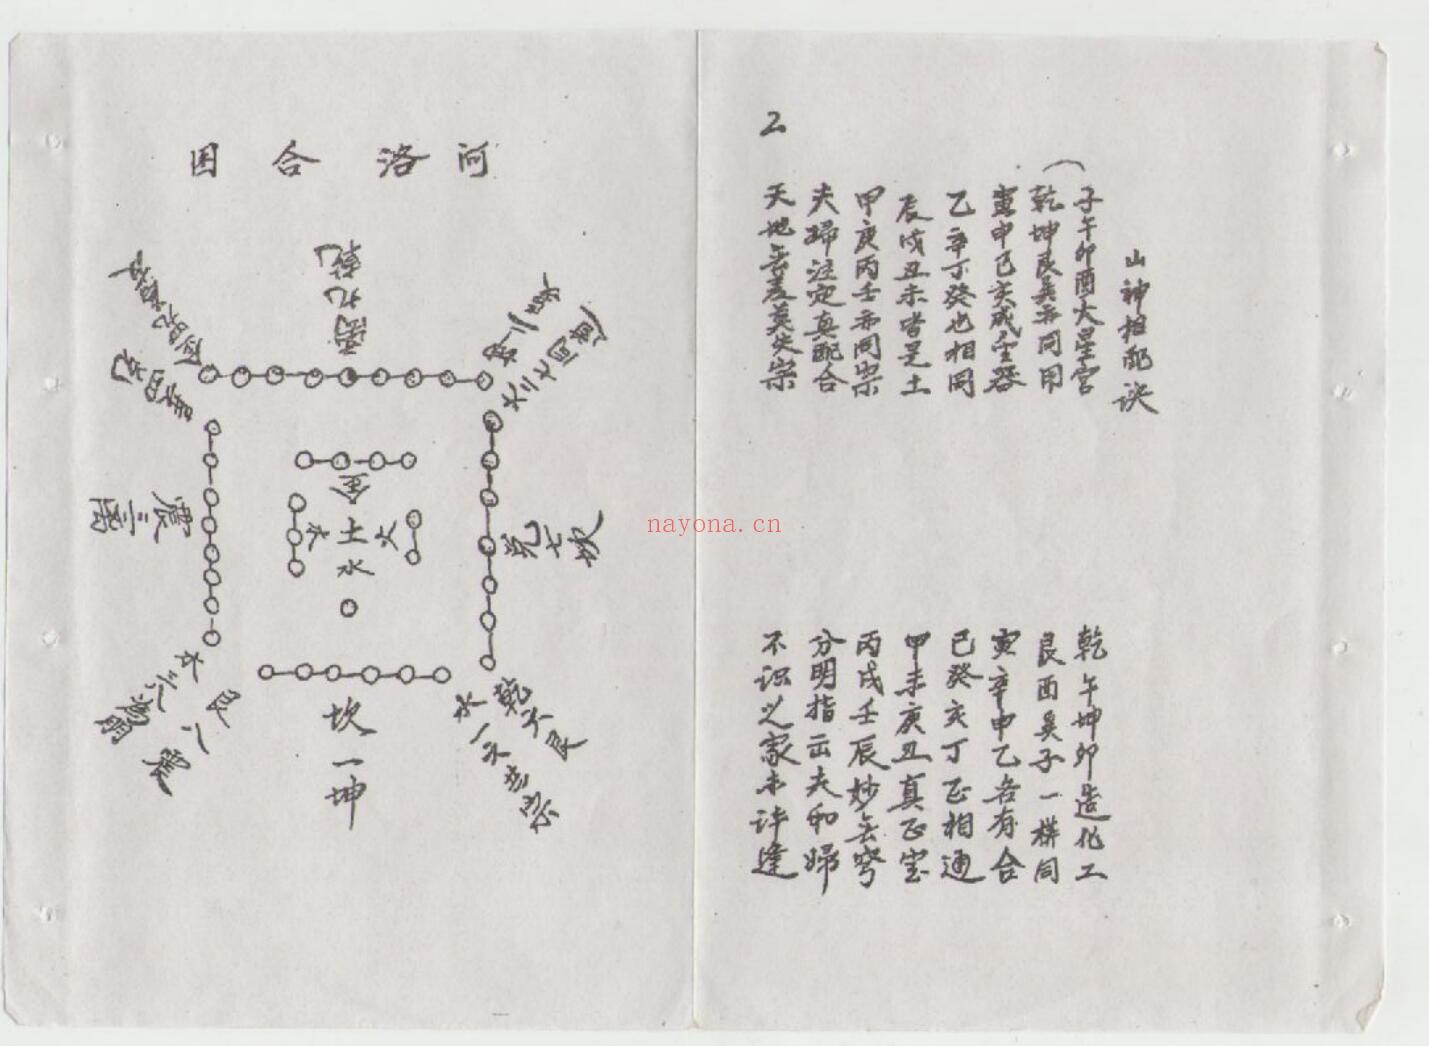 山神相配诀
子午卯酉大星宫
乾坤艮巽亦同用
寅申巳亥成金器
乙辛丁癸也相同
辰戌丑未皆是土
甲庚丙壬亦同宗
夫婦注定真配合
天地无差莫失宗
2
乾午坤卯造化工
艮酉巽子一様同
寅辛申乙各有合
巳癸亥丁正相通
甲未庚丑真正宝
丙戌壬辰妙无穹
分明指示夫和婦
不识之家未许逢
河洛合图
离九乾
坤二
火二七同道
巽四兑
震三离
兑七坎
金
木土火
水
艮八震
木三八為朋
坎一坤
乾六艮
水一六共宗
nayona.cn